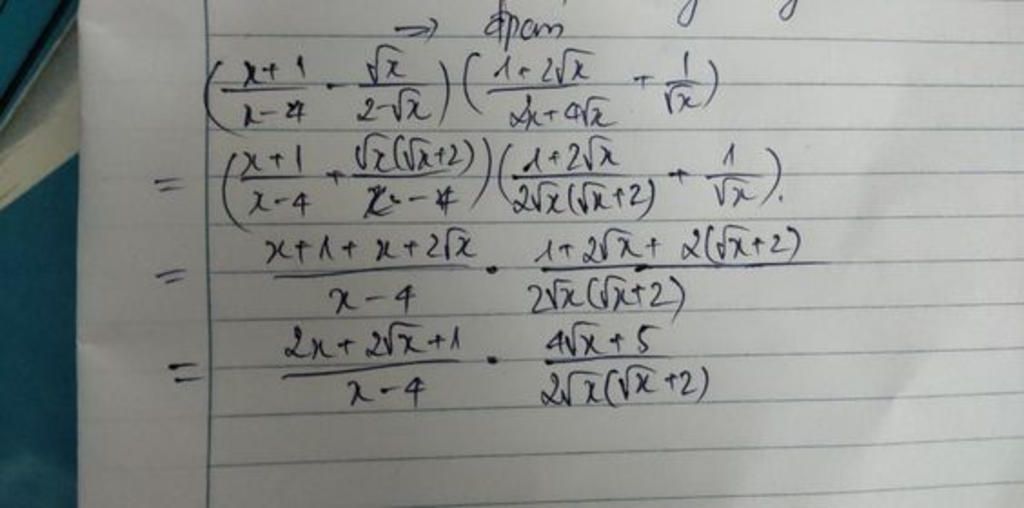 => đpcm
(\frac{x+1}{x-4} - \frac{\sqrt{x}}{2-\sqrt{x}})(\frac{1+2\sqrt{x}}{2x+4\sqrt{x}} + \frac{1}{\sqrt{x}})
= (\frac{x+1}{x-4} + \frac{\sqrt{x}(\sqrt{x}+2)}{x-4})(\frac{1+2\sqrt{x}}{2\sqrt{x}(\sqrt{x}+2)} + \frac{1}{\sqrt{x}}).
= \frac{x+1+x+2\sqrt{x}}{x-4} . \frac{1+2\sqrt{x}+2(\sqrt{x}+2)}{2\sqrt{x}(\sqrt{x}+2)}
= \frac{2x+2\sqrt{x}+1}{x-4} . \frac{4\sqrt{x}+5}{2\sqrt{x}(\sqrt{x}+2)}